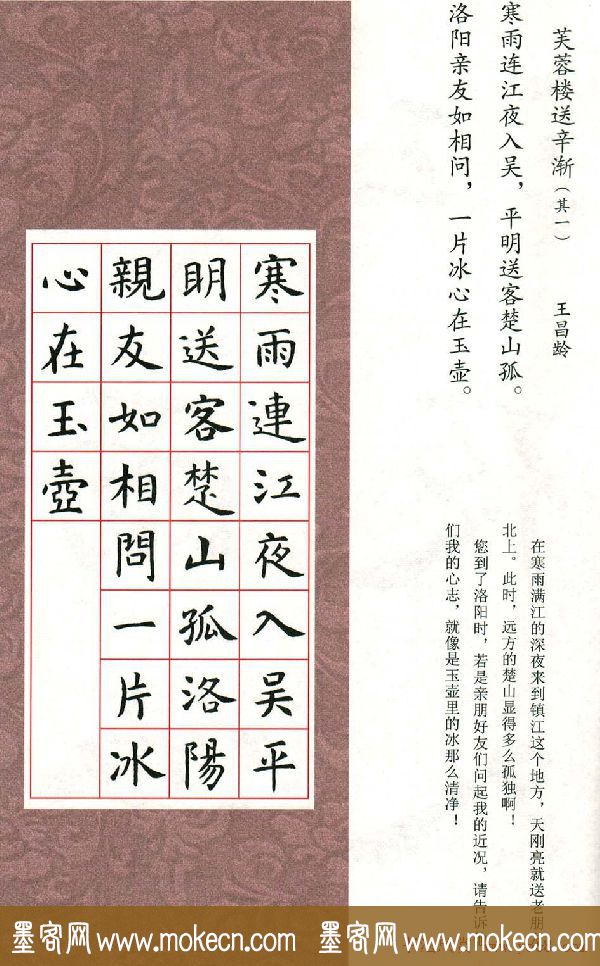 芙蓉楼送辛渐(其一) 王昌龄
寒雨连江夜入吴,平明送客楚山孤。
洛阳亲友如相问,一片冰心在玉壶。
在寒雨满江的深夜来到镇江这个地方,天刚亮就送老朋
北上。此时,远方的楚山显得多么孤独啊!
您到了洛阳时,若是亲朋好友们问起我的近况,请告诉
们我的心志,就像是玉壶里的冰那么清净!
寒雨連江夜入吴平
明送客楚山孤洛陽
親友如相問一片冰
心在玉壺
墨客网 www.mokecn.com 墨客网 www.mokecn.com